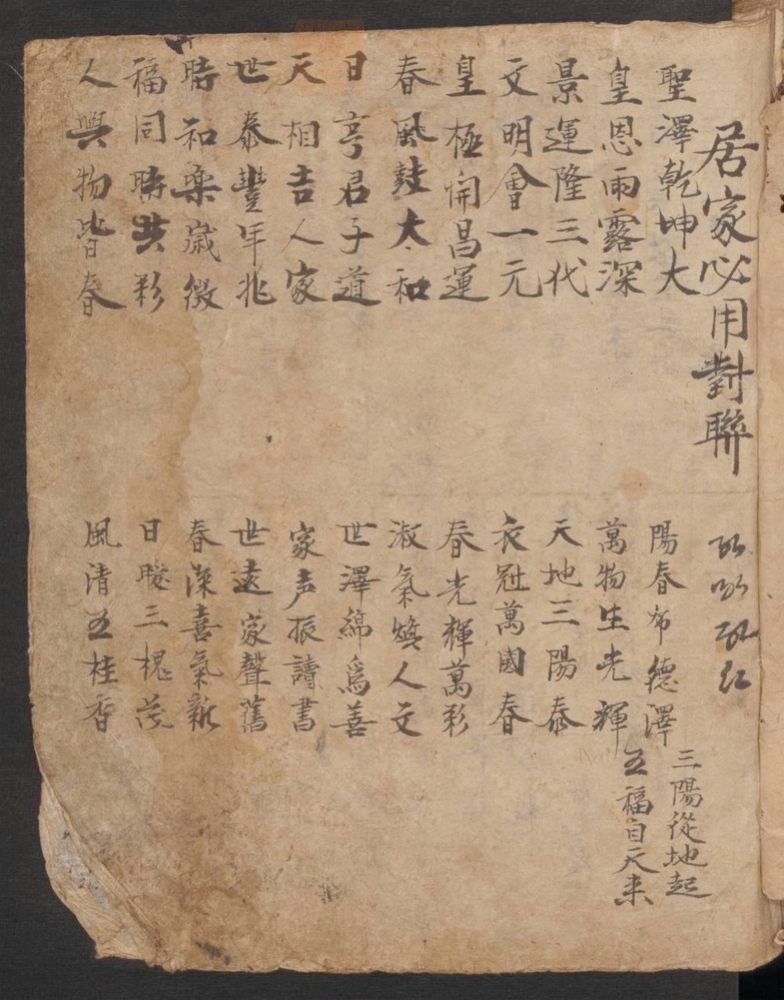 居家必用對聯
聖澤乾坤大
皇恩雨露深
景運隆三代
文明會一元
皇極開昌運
春風鼓太和
日亨君子道
天相吉人家
世泰豐年兆
時和楽歳徴
福同時共彩
人與物皆春
陽春布德澤
萬物生光輝
天地三陽泰
衣冠萬國春
春光輝萬彩
淑氣煥人文
世澤綿爲善
家声振讀書
世遠家聲舊
春深喜氣新
日暖三槐茂
風清五桂香
三陽從地起
五福自天来